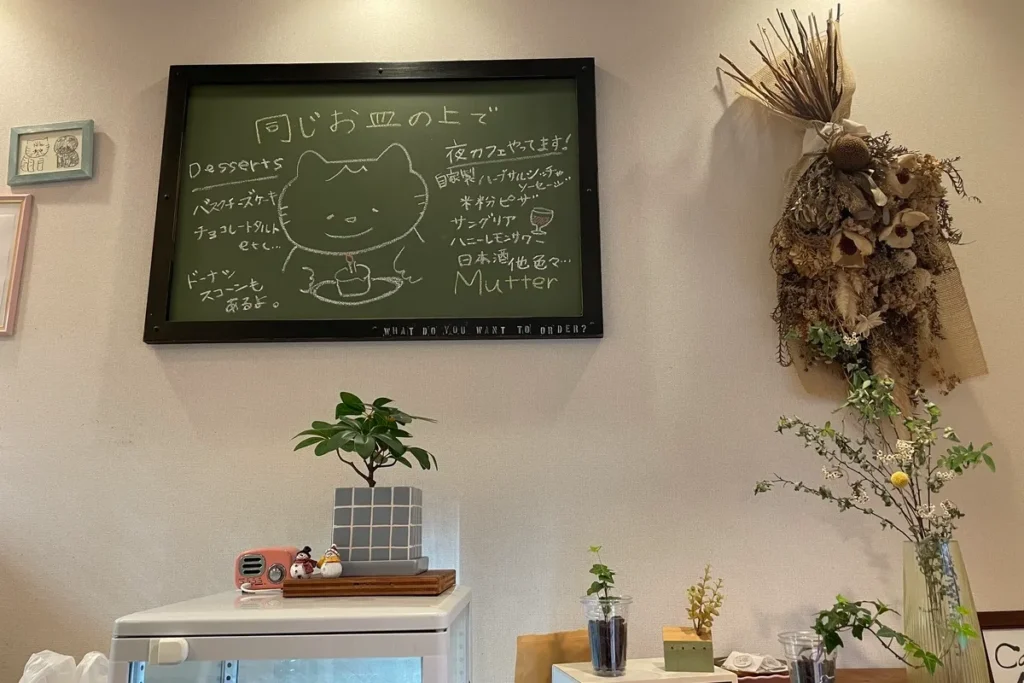 同じお皿の上で
Desserts
バスクチーズケーキ
チョコレートタルト
etc...
ドーナツ
スコーンも
あるよ。
夜カフェやってます!
自家製 ハーブサルシッチャ
ソーセージ
米粉ピザ
サングリア
ハニーレモンサワー
日本酒 他色々…
Mutter
WHAT DO YOU WANT TO ORDER?